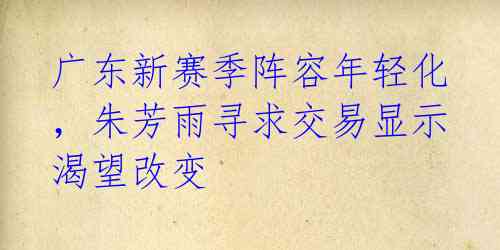 广东新赛季阵容年轻化
，朱芳雨寻求交易显示
渴望改变